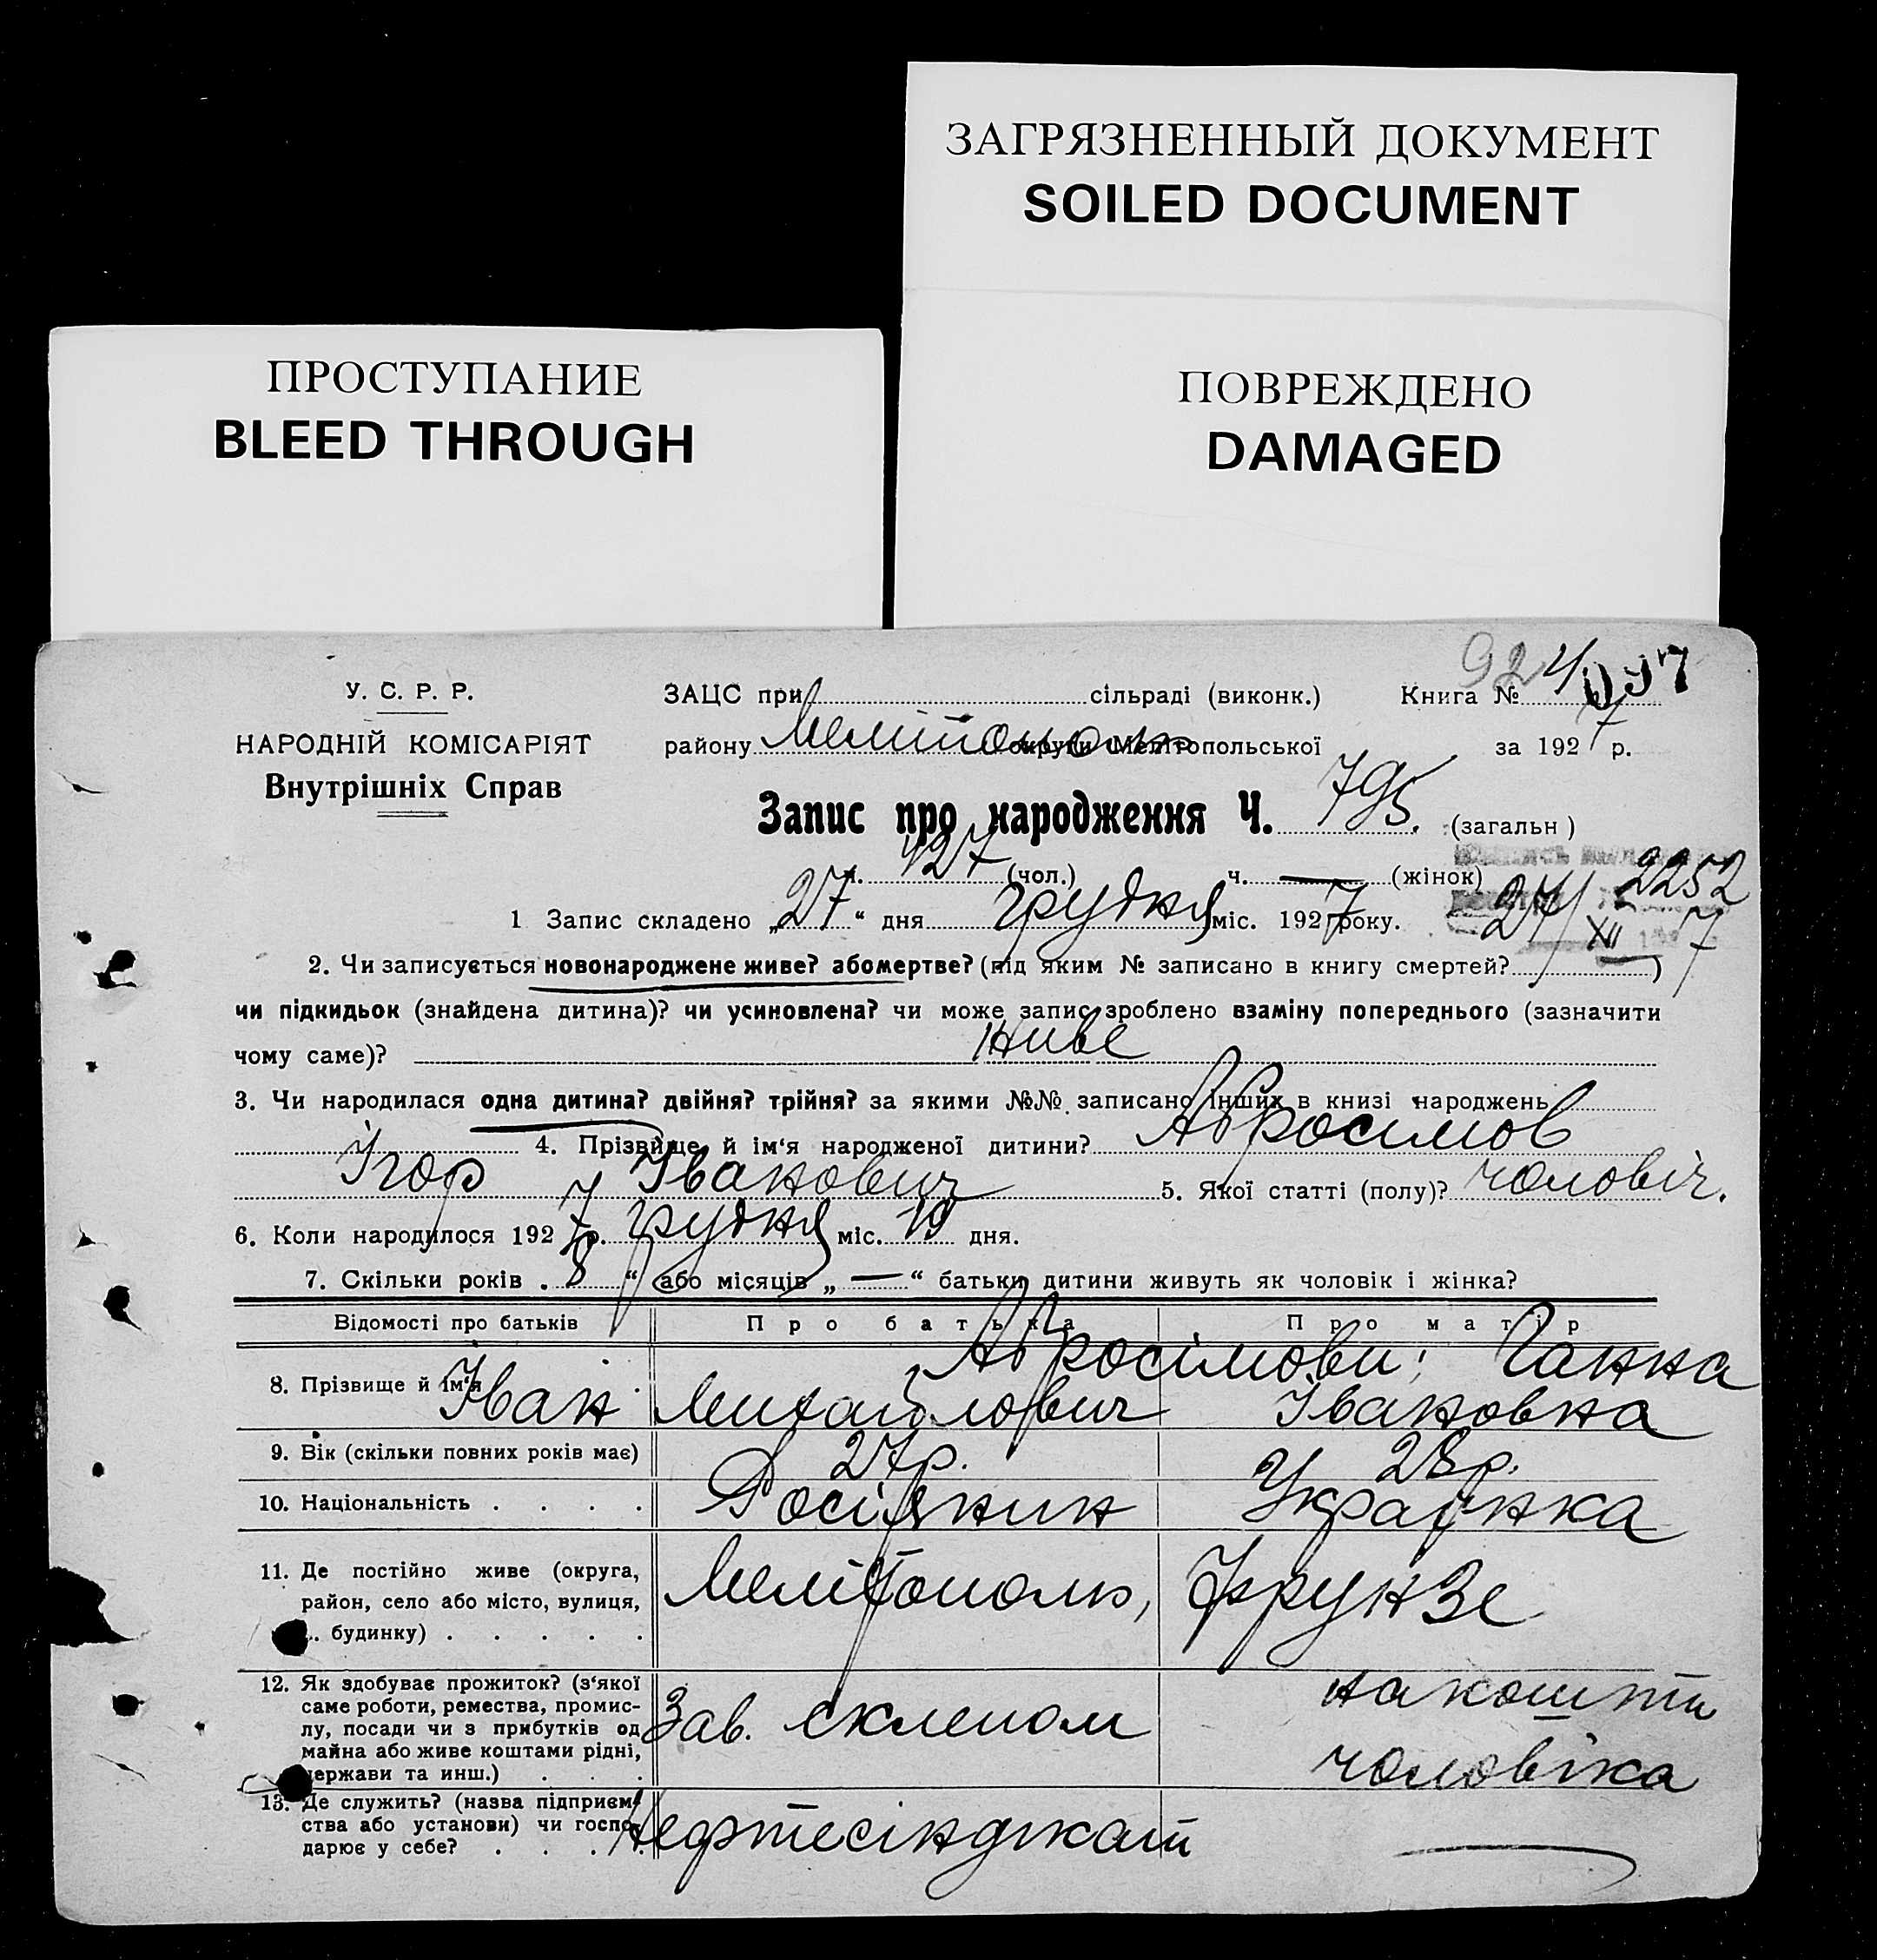 ЗАГРЯЗНЕННЫЙ ДОКУМЕНТ
SOILED DOCUMENT
ПРОСТУПАНИЕ
BLEED THROUGH
ПОВРЕЖДЕНО
DAMAGED
924
097
У. С. Р. Р.
НАРОДНІЙ КОМІСАРІЯТ
Внутрішніх Справ
ЗАЦС при сільраді (виконк.) Книга №
району Мелітополь округи Мелітопольської за 1927 р.
Запис про народження Ч. 795. (загальн)
ч. 427 (чол.) ч. — (жінок)
2252
27/XII 7
1 Запис складено „27“ дня грудня міс. 1927 року.
2. Чи записується новонароджене живе? або мертве? (під яким № записано в книгу смертей? )
чи підкидьок (знайдена дитина)? чи усиновлена? чи може запис зроблено взаміну попереднього (зазначити
чому саме)? живе
3. Чи народилася одна дитина? двійня? трійня? за якими №№ записано інших в книзі народжень
4. Прізвище й ім‘я народженої дитини? Абросимов
Ігор Іванович 5. Якої статті (полу)? чоловіч.
6. Коли народилося 1927 р. грудня міс. 19 дня.
7. Скільки років „8“ або місяців „—“ батьки дитини живуть як чоловік і жінка?
Відомості про батьків Про батька Про матір
8. Прізвище й ім‘я Абросімови; Ганна
Іван Михайлович Івановна
9. Вік (скільки повних років має) 27р. 28р.
10. Національність . . . . Росіянин Українка
11. Де постійно живе (округа,
район, село або місто, вулиця,
будинку) . . . . . Мелітополь, Фрунзе
12. Як здобуває прожиток? (з‘якої
саме роботи, ремества, промис-
лу, посади чи з прибутків од
майна або живе коштами рідні,
держави та инш.) . . . Зав. склепом на кошти чоловіка
13. Де служить? (назва підприєм-
ства або установи) чи госпо-
дарює у себе? . . . . Нефтесіндикат —